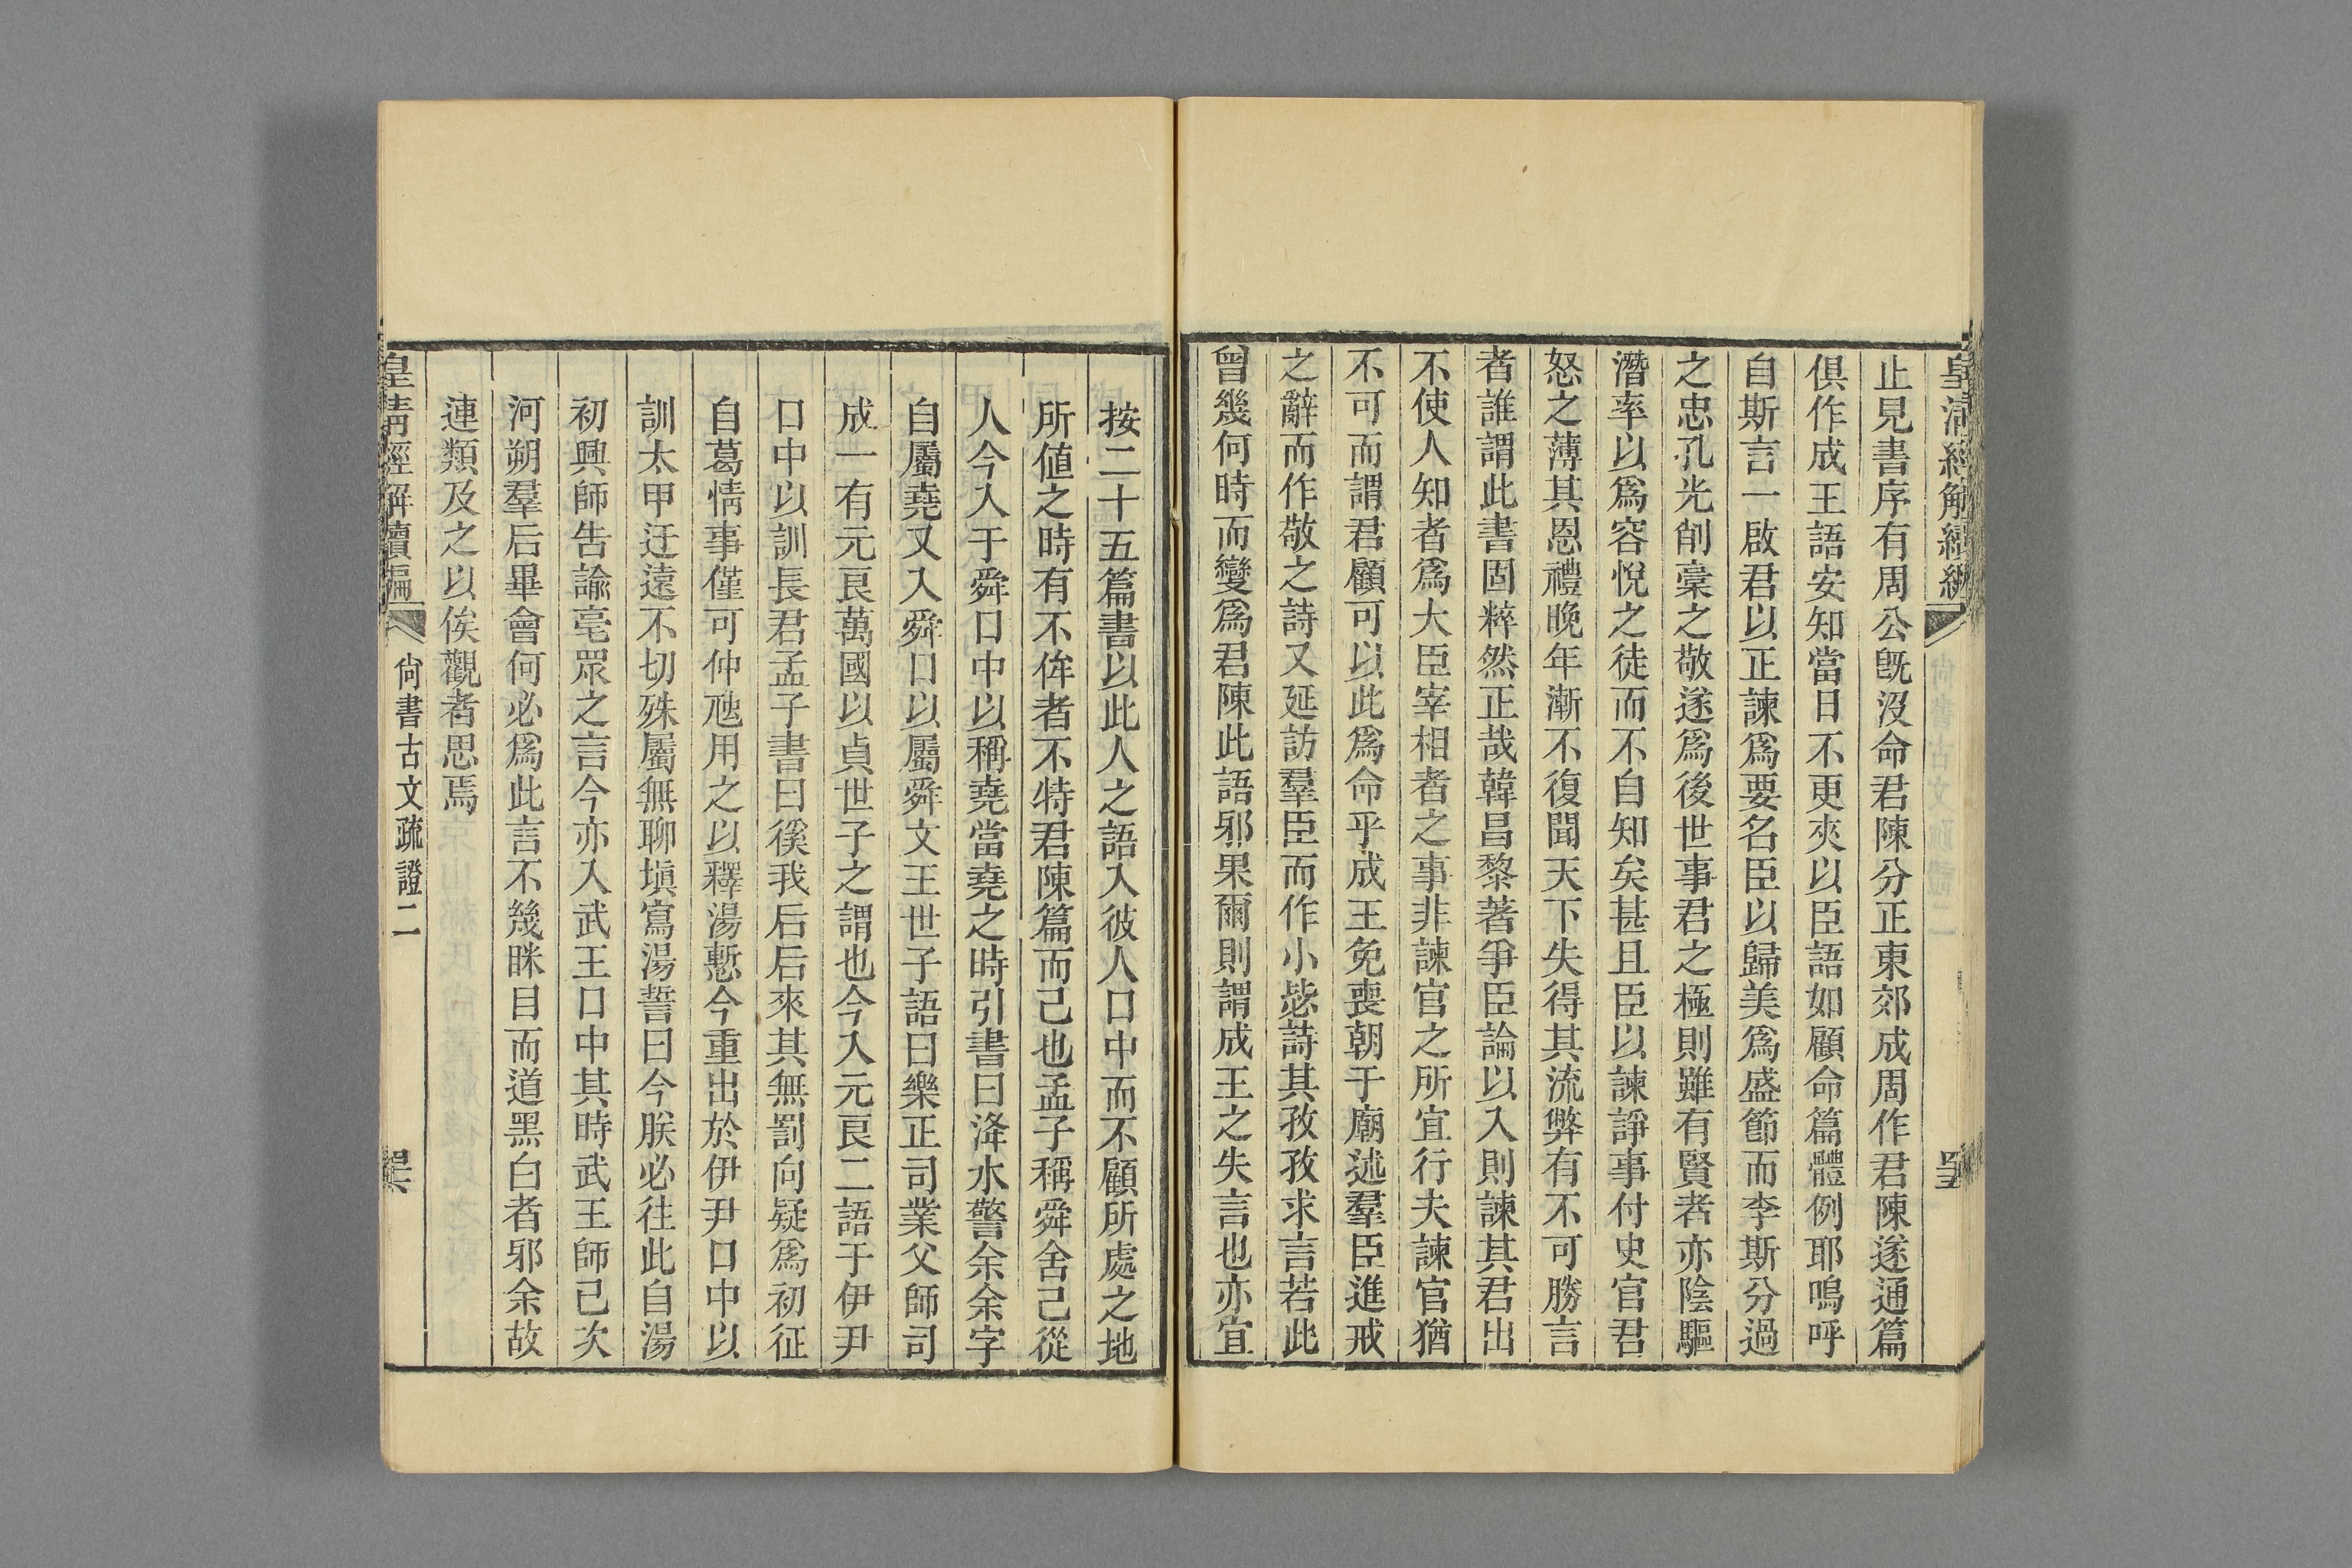 皇清經解續編
止見書序有周公旣沒命君陳分正東郊成周作君陳遂通篇
俱作成王語安知當日不更夾以臣語如顧命篇體例耶嗚呼
自斯言一啟君以正諫爲要名臣以歸美爲盛節而李斯分過
之忠孔光削稾之敬遂爲後世事君之極則雖有賢者亦陰驅
潛率以爲容悅之徒而不自知矣甚且臣以諫諍事付史官君
怒之薄其恩禮晚年漸不復聞天下失得其流弊有不可勝言
者誰謂此書固粹然正哉韓昌黎著爭臣論以入則諫其君出
不使人知者爲大臣宰相者之事非諫官之所宜行夫諫官猶
不可而謂君顧可以此爲命乎成王免喪朝于廟述羣臣進戒
之辭而作敬之詩又延訪羣臣而作小毖詩其孜孜求言若此
曾幾何時而變爲君陳此語邪果爾則謂成王之失言也亦宜
按二十五篇書以此人之語入彼人口中而不顧所處之地
所値之時有不侔者不特君陳篇而已也孟子稱舜舍己從
人今入于舜口中以稱堯當堯之時引書曰洚水警余余字
自屬堯又入舜口以屬舜文王世子語曰樂正司業父師司
成一有元良萬國以貞世子之謂也今入元良二語于伊尹
口中以訓長君孟子書曰徯我后后來其無罰向疑爲初征
自葛情事僅可仲虺用之以釋湯慙今重出於伊尹口中以
訓太甲迂遠不切殊屬無聊塡寫湯誓曰今朕必往此自湯
初興師告諭亳眾之言今亦入武王口中其時武王師已次
河朔羣后畢會何必爲此言不幾眯目而道黑白者邪余故
連類及之以俟觀者思焉
皇淸經解續編
尙書古文疏證二